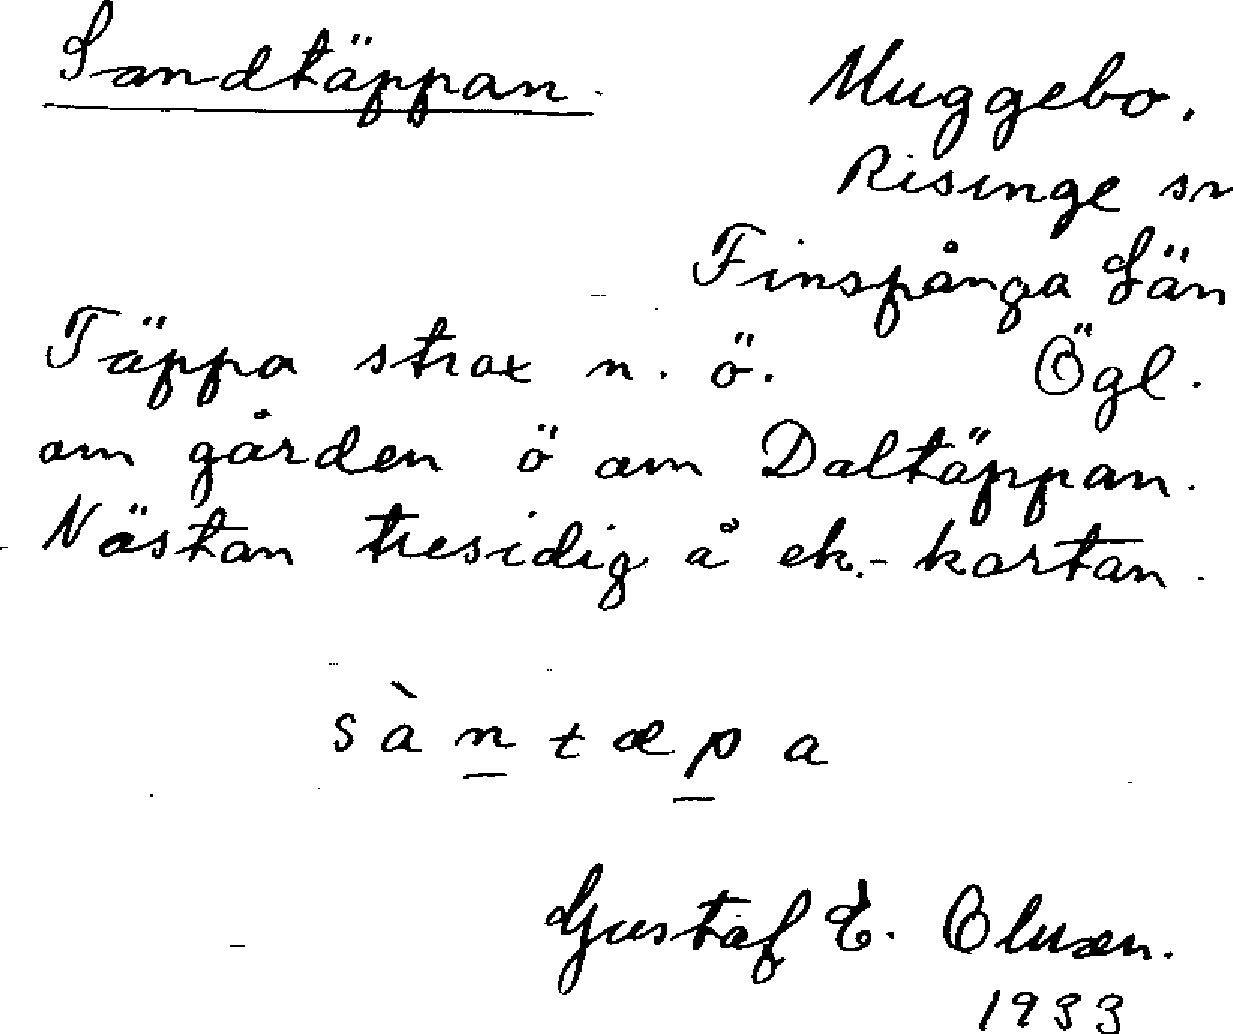 Sandtäppan.
Muggebo.
Risinge sn
Finspånga Län
Täppa strax n. ö. Ögl.
om gården ö om Daltäppan.
Nästan tresidig å ek.-kartan.
sàn̲tæp̲a
Gustaf E. Oluxen.
1933